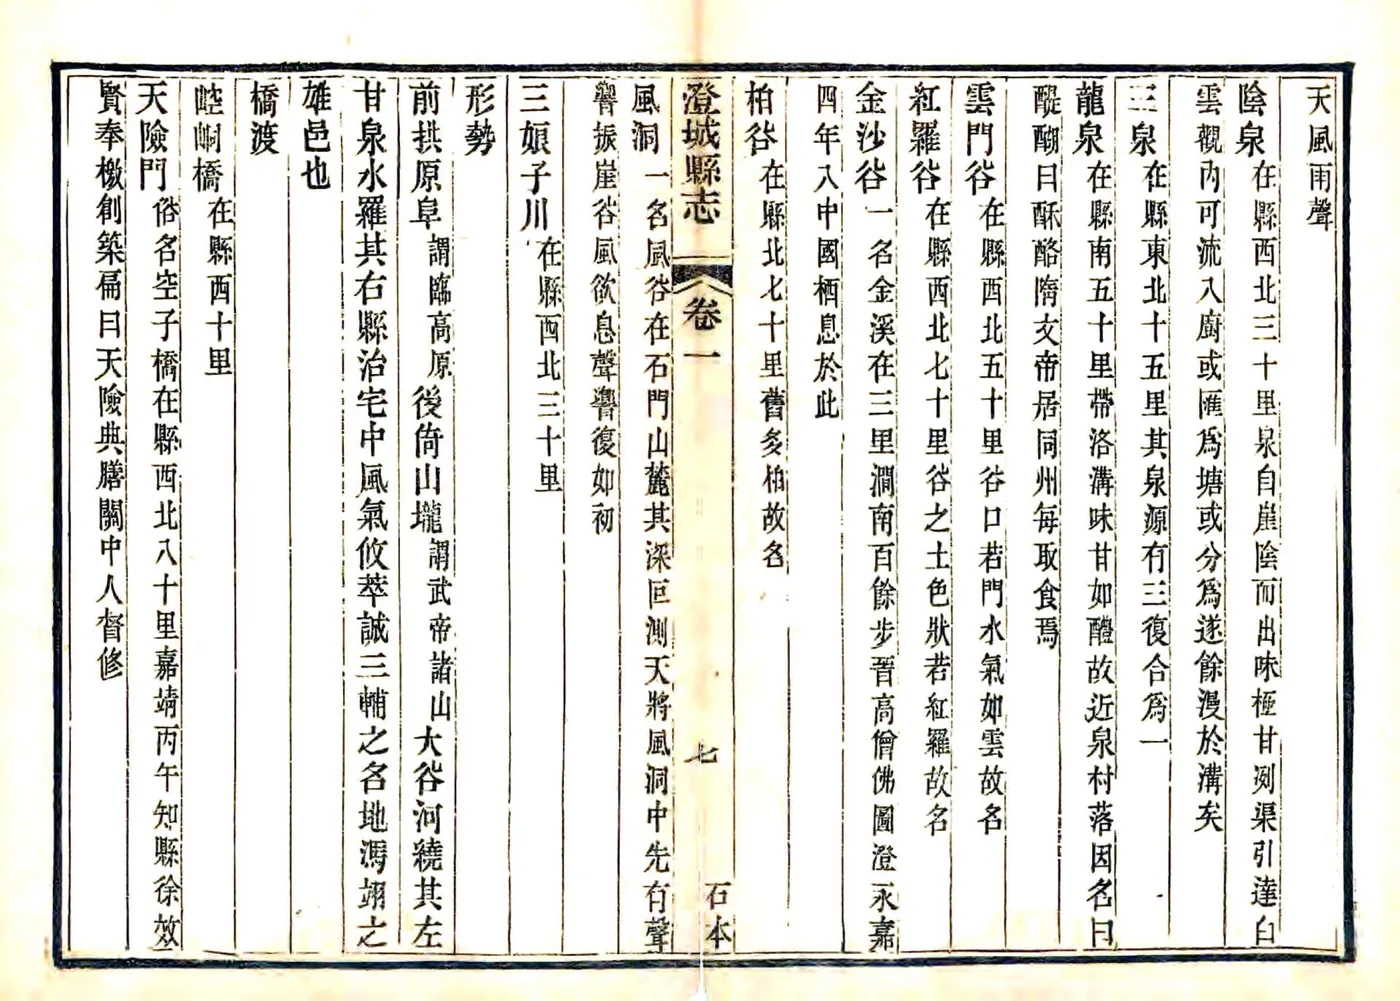 天風雨聲
陰泉在縣西北三十里泉自崖陰而出味極甘冽渠引達白
雲觀內可流入廚或匯爲塘或分爲遂餘漫於溝矣
三泉在縣東北十五里其泉源有三復合爲一
龍泉在縣南五十里帶洛溝味甘如醴故近泉村落因名曰
醍醐曰酥酪隋文帝居同州每取食焉
雲門谷在縣西北五十里谷口若門水氣如雲故名
紅羅谷在縣西北七十里谷之土色狀若紅羅故名
金沙谷一名金溪在三里澗南百餘步晉高僧佛圖澄永嘉
四年入中國栖息於此
柏谷在縣北七十里舊多柏故名
澄城縣志 卷一 七 石本
風洞一名風谷在石門山麓其深叵測天將風洞中先有聲
響振崖谷風欲息聲響復如初
三娘子川在縣西北三十里
形勢
前拱原阜謂臨高原後倚山壠謂武帝諸山大谷河繞其左
甘泉水羅其右縣治宅中風氣攸萃誠三輔之名地馮翊之
雄邑也
橋渡
崆峒橋在縣西十里
天險門俗名空子橋在縣西北八十里嘉靖丙午知縣徐效
賢奉檄創築扁曰天險典膳關中人督修